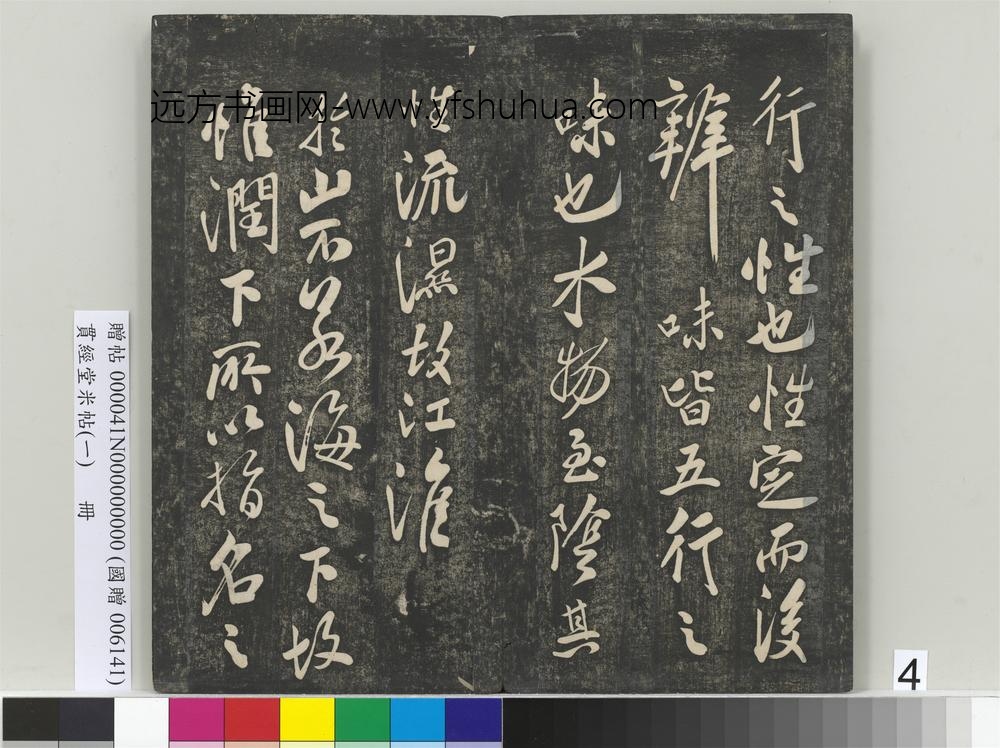 行之性也性定而後
辨味皆五行之
味也水物至陰其
性流濕故江淮
於山不若海之下故
惟潤下所以指名之
远方书画网-www.yfshuhua.com
贈帖 000041N000000000 (國贈 006141)
貫經堂米帖(一) 冊
4